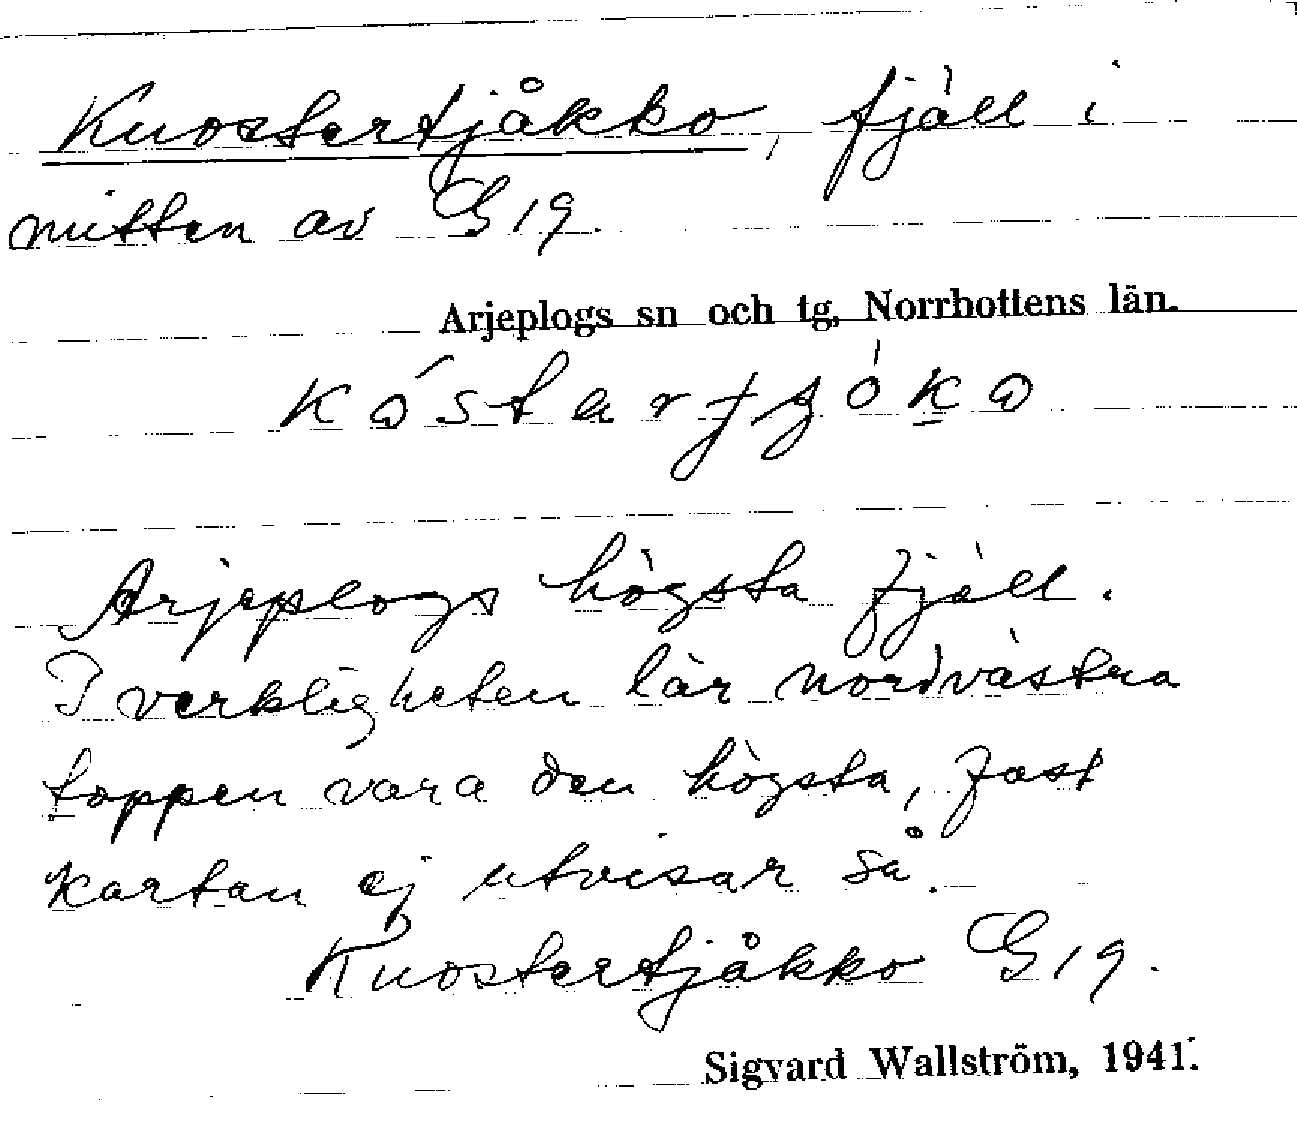 Kuostertjåkko, fjäll i
mitten av G 19.
Arjeplogs sn och tg, Norrbottens län.
Arjeplogs högsta fjäll.
I verkligheten lär nordvästra
toppen vara den högsta, fast
kartan ej utvisar så.
Kuostertjåkko G 19.
Sigvard Wallström, 1941.